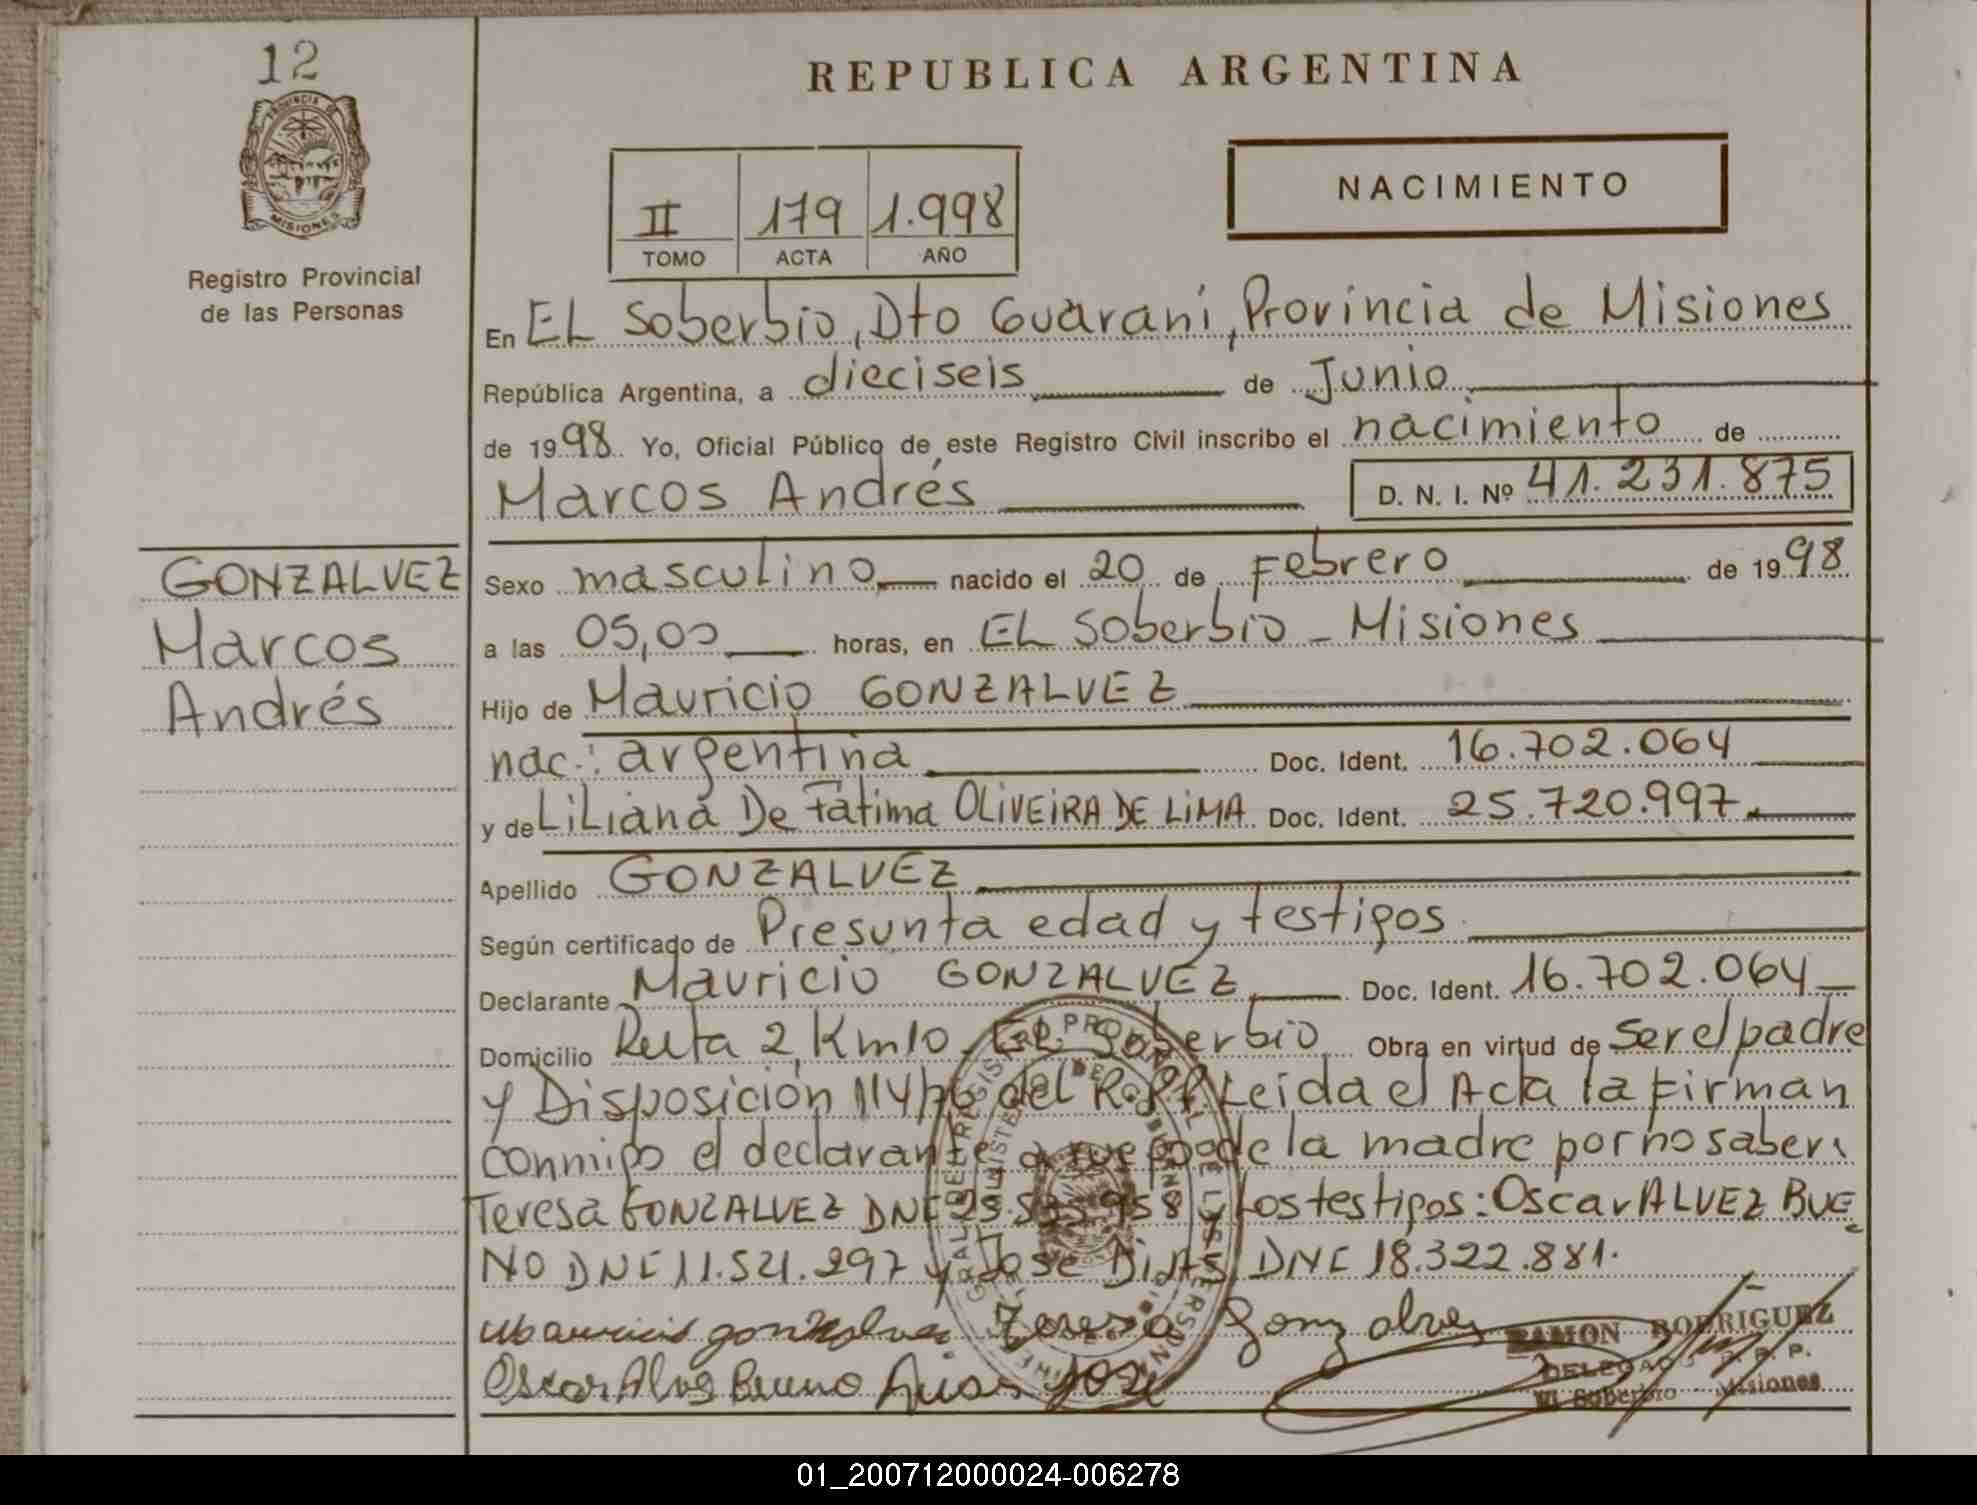 12
PROVINCIA DE
MISIONES
Registro Provincial
de las Personas
GONZALVEZ
Marcos
Andrés
REPUBLICA ARGENTINA
II 179 1.998
TOMO ACTA AÑO
NACIMIENTO
En EL Soberbio, Dto Guaraní, Provincia de Misiones
República Argentina, a dieciseis de Junio
de 1998 Yo, Oficial Público de este Registro Civil inscribo el nacimiento de
Marcos Andrés D. N. I. Nº 41.231.875
Sexo masculino nacido el 20 de Febrero de 1998
a las 05,00 horas, en EL Soberbio - Misiones
Hijo de Mauricio GONZALVEZ
nac.: argentina Doc. Ident. 16.702.064
y de LiLiana De Fátima OLIVEIRA DE LIMA Doc. Ident. 25.720.997
Apellido GONZALVEZ
Según certificado de Presunta edad y testigos
Declarante Mauricio GONZALVEZ Doc. Ident. 16.702.064
Domicilio Ruta 2, Km 10 - EL Soberbio Obra en virtud de ser el padre
y Disposición 114/76 del R.P.P. Leida el Acta la firman
conmigo el declarante, a ruego de la madre por no saber:
Teresa GONZALVEZ DNI y Los testigos: Oscar ALVEZ BUE
NO DNI 11.521.297 y José DNI 18.322.881.
Mauricio gonzalvez Teresa Gonzalvez
Oscar Alves Bueno José
RAMON RODRIGUEZ
DELEGADO R. P. P.
El Soberbio - Misiones
01_200712000024-006278